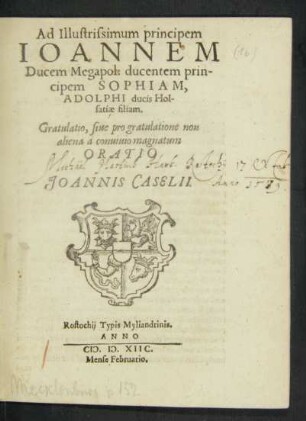 Ad Illustrissimum principem
IOANNEM
Ducem Megapol: ducentem prin-
cipem SOPHIAM,
ADOLPHI ducis Hol-
satiæ filiam,
Gratulatio, siue pro gratulatione non
aliena a conuiuio magnatum
ORATIO
IOANNIS CASELII.
Rostochij Typis Myliandrinis.
ANNO
CIƆ. IƆ. XIIC.
Mense Februario.